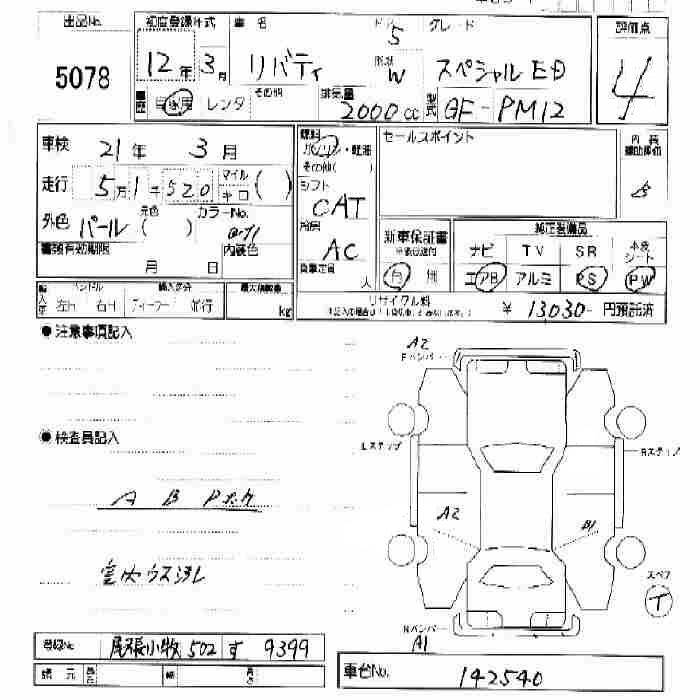 出品No.
5078
初度登録年式
12年 3月
車名
リバティ
ドア
5
グレード
スペシャルED
形状
W
自家用 レンタ その他
排気量
2000cc
型式
GF-PM12
評価点
4
車検 21年 3月
走行 5万1千520 マイル キロ ( )
外色 パール 元色 ( ) カラーNo.
内装色
書類有効期限
月 日
燃料
ガソリン・軽油
その他( )
シフト
CAT
冷房
AC
乗車定員
人
セールスポイント
内装
補助評価
B
新車保証書
有 無
純正装備品
ナビ TV SR 本皮シート
エアB アルミ PS PW
輸入車
ハンドル
左H 右H
輸入区分
ディーラー 並行
最大積載量
kg
リサイクル料
¥ 13030- 円預託済
●注意事項記入
●検査員記入
A B Pキズ
室内ウスヨゴレ
A2
Fバンパー
Lステップ
Rステップ
A2
B1
スペア
T
Rバンパー
A1
登録No. 尾張小牧 502 す 9399
諸元 長さ 幅 高さ
車台No. 142540